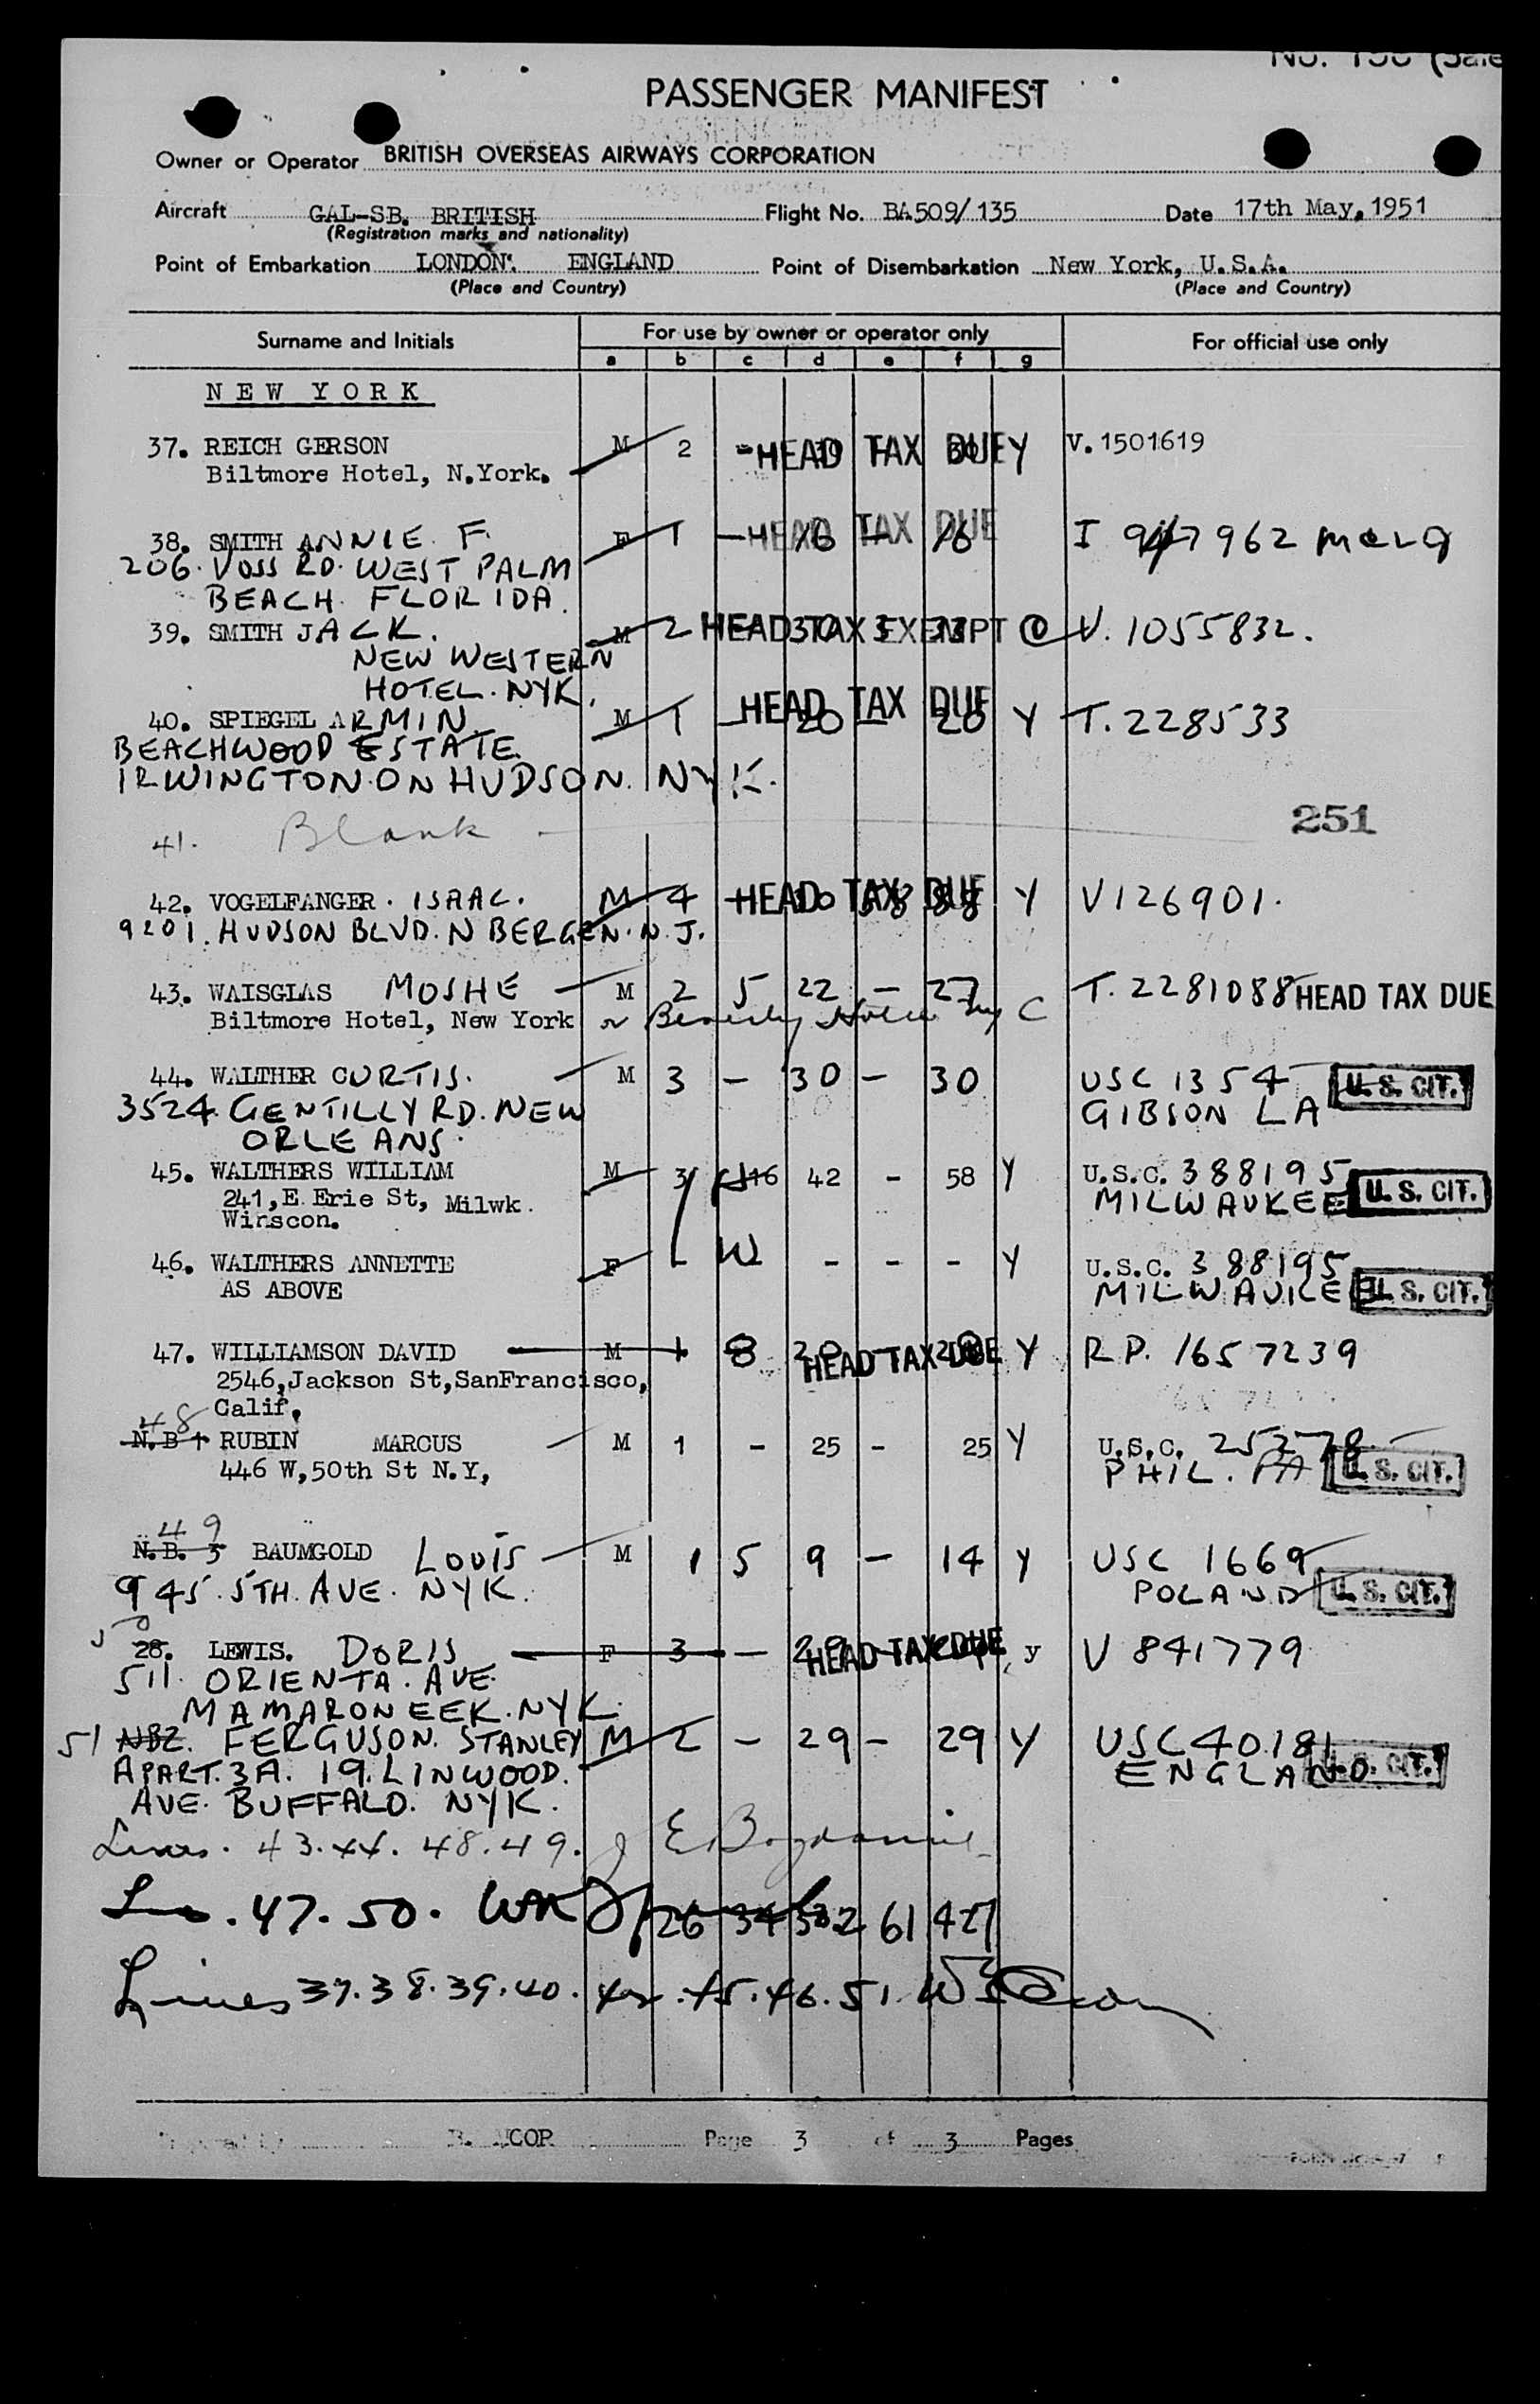 PASSENGER MANIFEST
Owner or Operator BRITISH OVERSEAS AIRWAYS CORPORATION
Aircraft GAL-SB. BRITISH Flight No. BA509/135 Date 17th May, 1951
(Registration marks and nationality)
Point of Embarkation LONDON. ENGLAND Point of Disembarkation New York, U.S.A.
(Place and Country) (Place and Country)
Surname and Initials For use by owner or operator only For official use only
a b c d e f g
NEW YORK
37. REICH GERSON M 2 - HEAD TAX DUE Y V.1501619
Biltmore Hotel, N.York.
38. SMITH ANNIE F. F 1 - HEAD TAX DUE 16 - 16 I 947962
206. VOSS RD. WEST PALM
BEACH. FLORIDA.
39. SMITH JACK. M 2 HEAD TAX EXEMPT 30 3 33 V. 1055832.
NEW WESTERN
HOTEL. NYK.
40. SPIEGEL ARMIN M 1 - HEAD TAX DUE 20 - 20 Y T. 228533
BEACHWOOD ESTATE
IRWINGTON.ON HUDSON. NYK.
41. Blank 251
42. VOGELFANGER. ISAAC. M 4 - HEAD TAX DUE 30 58 88 Y V126901.
9201. HUDSON BLVD. N BERGEN. N.J.
43. WAISGLAS MOSHE M 2 5 22 - 27 T. 2281088 HEAD TAX DUE
Biltmore Hotel, New York C
44. WALTHER CURTIS. M 3 - 30 - 30 USC 1354 U.S. CIT.
3524. GENTILLY RD. NEW GIBSON LA
ORLEANS.
45. WALTHERS WILLIAM M 3 16 42 - 58 Y U.S.C. 388195
241,E Erie St, Milwk. MILWAUKEE U.S. CIT.
Winscon.
46. WALTHERS ANNETTE F - W - - - Y U.S.C. 388195
AS ABOVE MILWAUKEE U.S. CIT.
47. WILLIAMSON DAVID M 1 8 20 HEAD TAX DUE 28 Y R.P. 1657239
2546,Jackson St,SanFrancisco,
Calif.
48
N.B 1 RUBIN MARCUS M 1 - 25 - 25 Y U.S.C. 25278
446 W,50th St N.Y, PHIL. PA U.S. CIT.
49
N.B. 3 BAUMGOLD LOUIS M 1 5 9 - 14 y USC 1669
945. 5TH. AVE. NYK. POLAND U.S. CIT.
50
28. LEWIS. DORIS F 3 - 29 HEAD TAX DUE y V 841779
511. ORIENTA. AVE.
MAMARONEEK. NYK.
51 NB2. FERGUSON. STANLEY M 2 - 29 - 29 Y USC 40181
APART. 3A. 19. LINWOOD. ENGLAND U.S. CIT.
AVE. BUFFALO. NYK.
Lines. 43.44. 48.49.
47.50. 26 34 61
Lines 37.38.39.40. 42.45.46.51.
Page 3 of 3 Pages